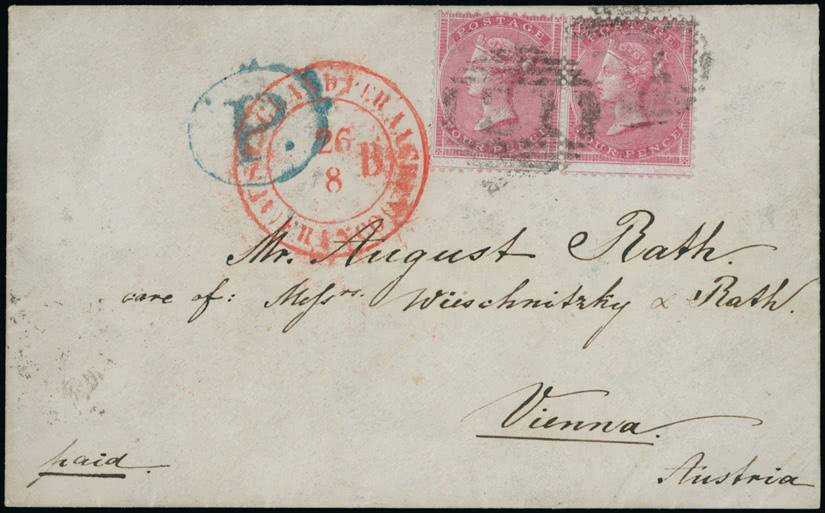 POSTAGE
FOUR PENCE
P
26
8
B
FRANCO
Mr. August Rath.
care of: Messrs. Wieschnitzky & Rath.
Vienna.
Austria
paid